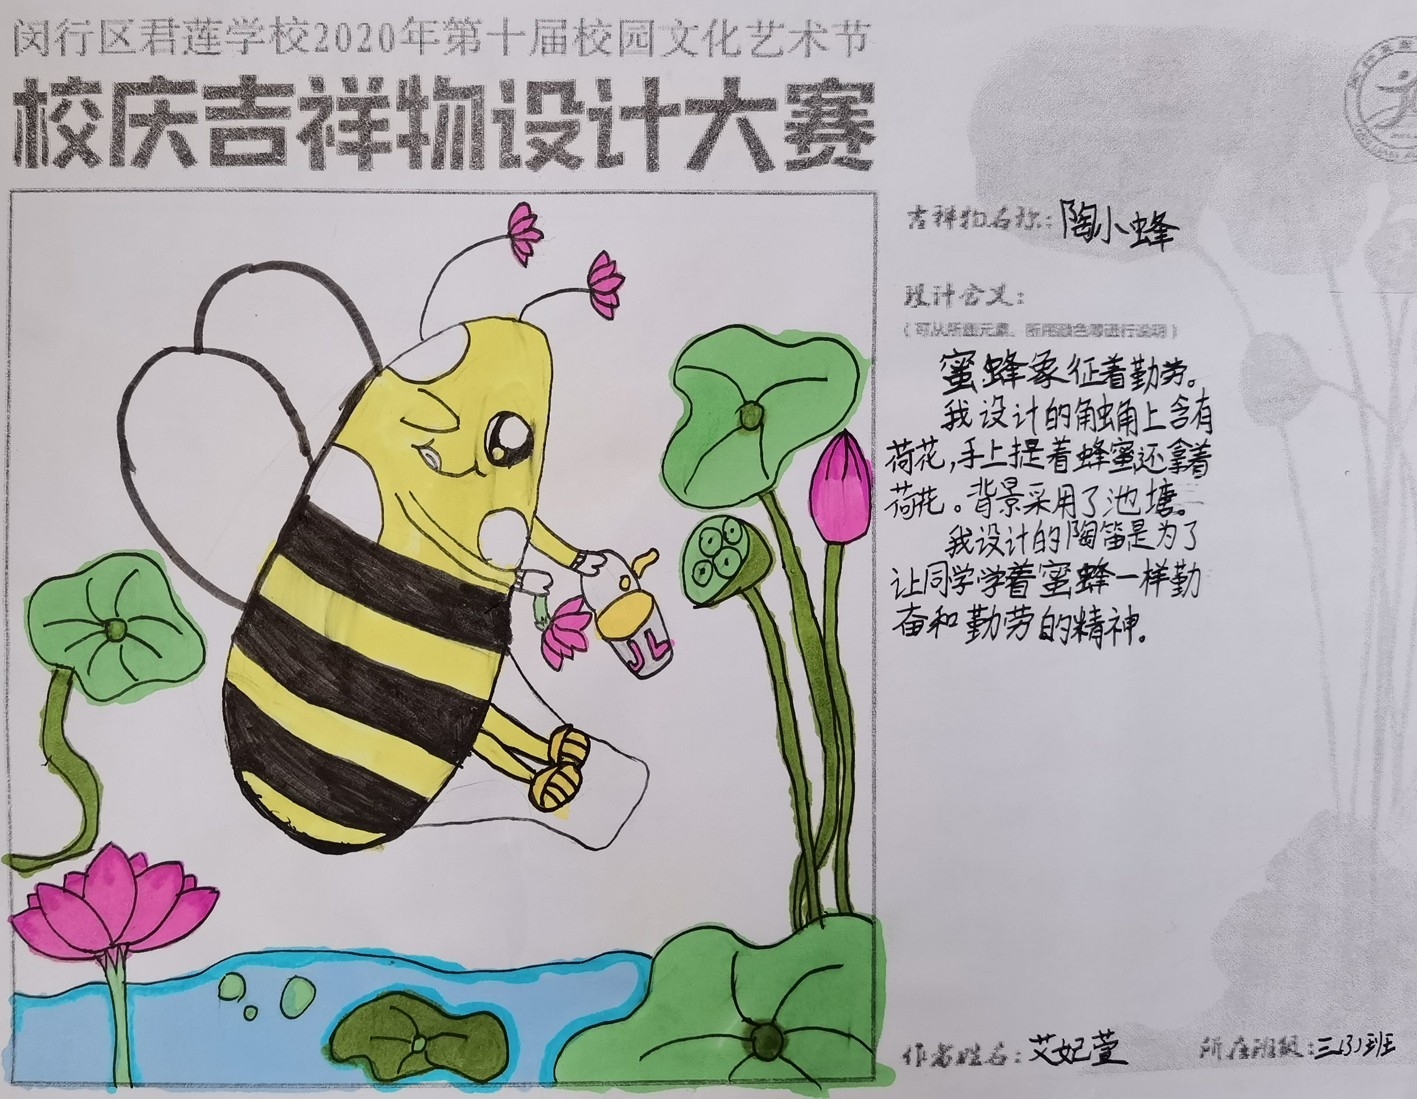 闵行区君莲学校2020年第十届校园文化艺术节
校庆吉祥物设计大赛
吉祥物名称：陶小蜂
设计含义：
（可从所选元素、所用颜色等进行说明）
蜜蜂象征着勤劳。
我设计的角虫角上含有
荷花，手上提着蜂蜜还拿着
荷花。背景采用了池塘。
我设计的陶笛是为了
让同学学着蜜蜂一样勤
奋和勤劳的精神。
JL
作者姓名：艾妃萱
所在班级：三（3）班